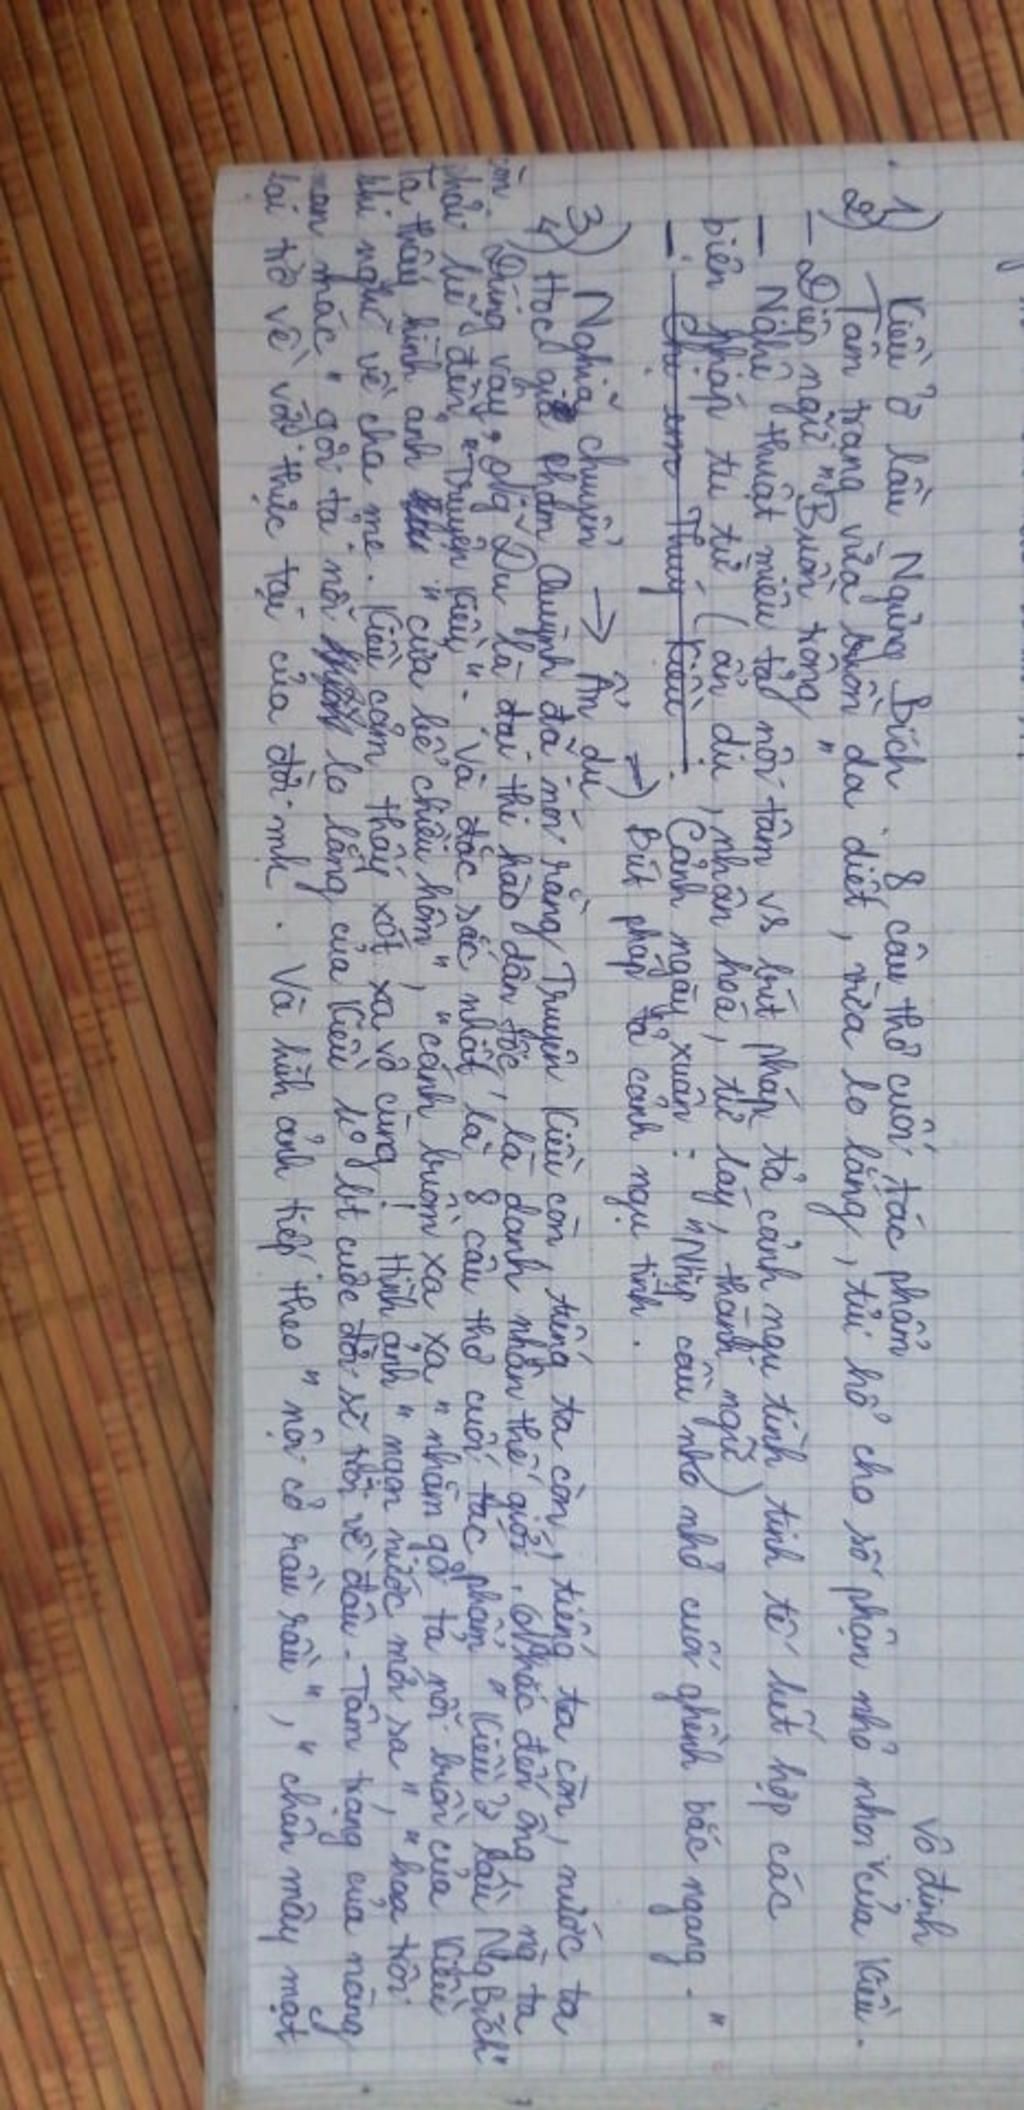 vô định
1) Kiều ở lầu Ngưng Bích. 8 câu thơ cuối tác phẩm
2) - Tâm trạng vừa buồn da diết, vừa lo lắng, tủi hổ cho số phận nhỏ nhoi của Kiều.
- Điệp ngữ "Buồn trông"
- Nghệ thuật miêu tả nội tâm vs bút pháp tả cảnh ngụ tình tinh tế kết hợp các
biện pháp tu từ (ẩn dụ, nhân hoá, từ láy, thành ngữ)
- Chị em Thúy Kiều. Cảnh ngày xuân: "Nhịp cầu nho nhỏ cuối ghềnh bắc ngang."
=) Bút pháp tả cảnh ngụ tình.
3) Nghĩa chuyển → Ẩn dụ
4) Học giả Phạm Quỳnh đã nói rằng, Truyện Kiều còn, tiếng ta còn, tiếng ta còn, nước ta
còn. Đúng vậy, Ng Du là đại thi hào dân tộc, là danh nhân thế giới. Nhắc đến ông, ng ta
phải kể đến "Truyện Kiều". Và đặc sắc nhất là 8 câu thơ cuối tác phẩm "Kiều ở lầu Ng Bích"
Ta thấy hình ảnh "cửa bể chiều hôm", "cánh buồm xa xa" nhằm gợi tả nỗi buồn của Kiều
khi nghĩ về cha mẹ. Kiều cảm thấy xót xa vô cùng! Hình ảnh "ngọn nước mới sa", "hoa trôi
man mác" gợi tả nỗi lo lắng của Kiều ko bt cuộc đời sẽ trôi về đâu. Tâm trạng của nàng
lại trở về với thực tại của đời mk. Và hình ảnh tiếp theo "nội cỏ rầu rầu", "chân mây mặt